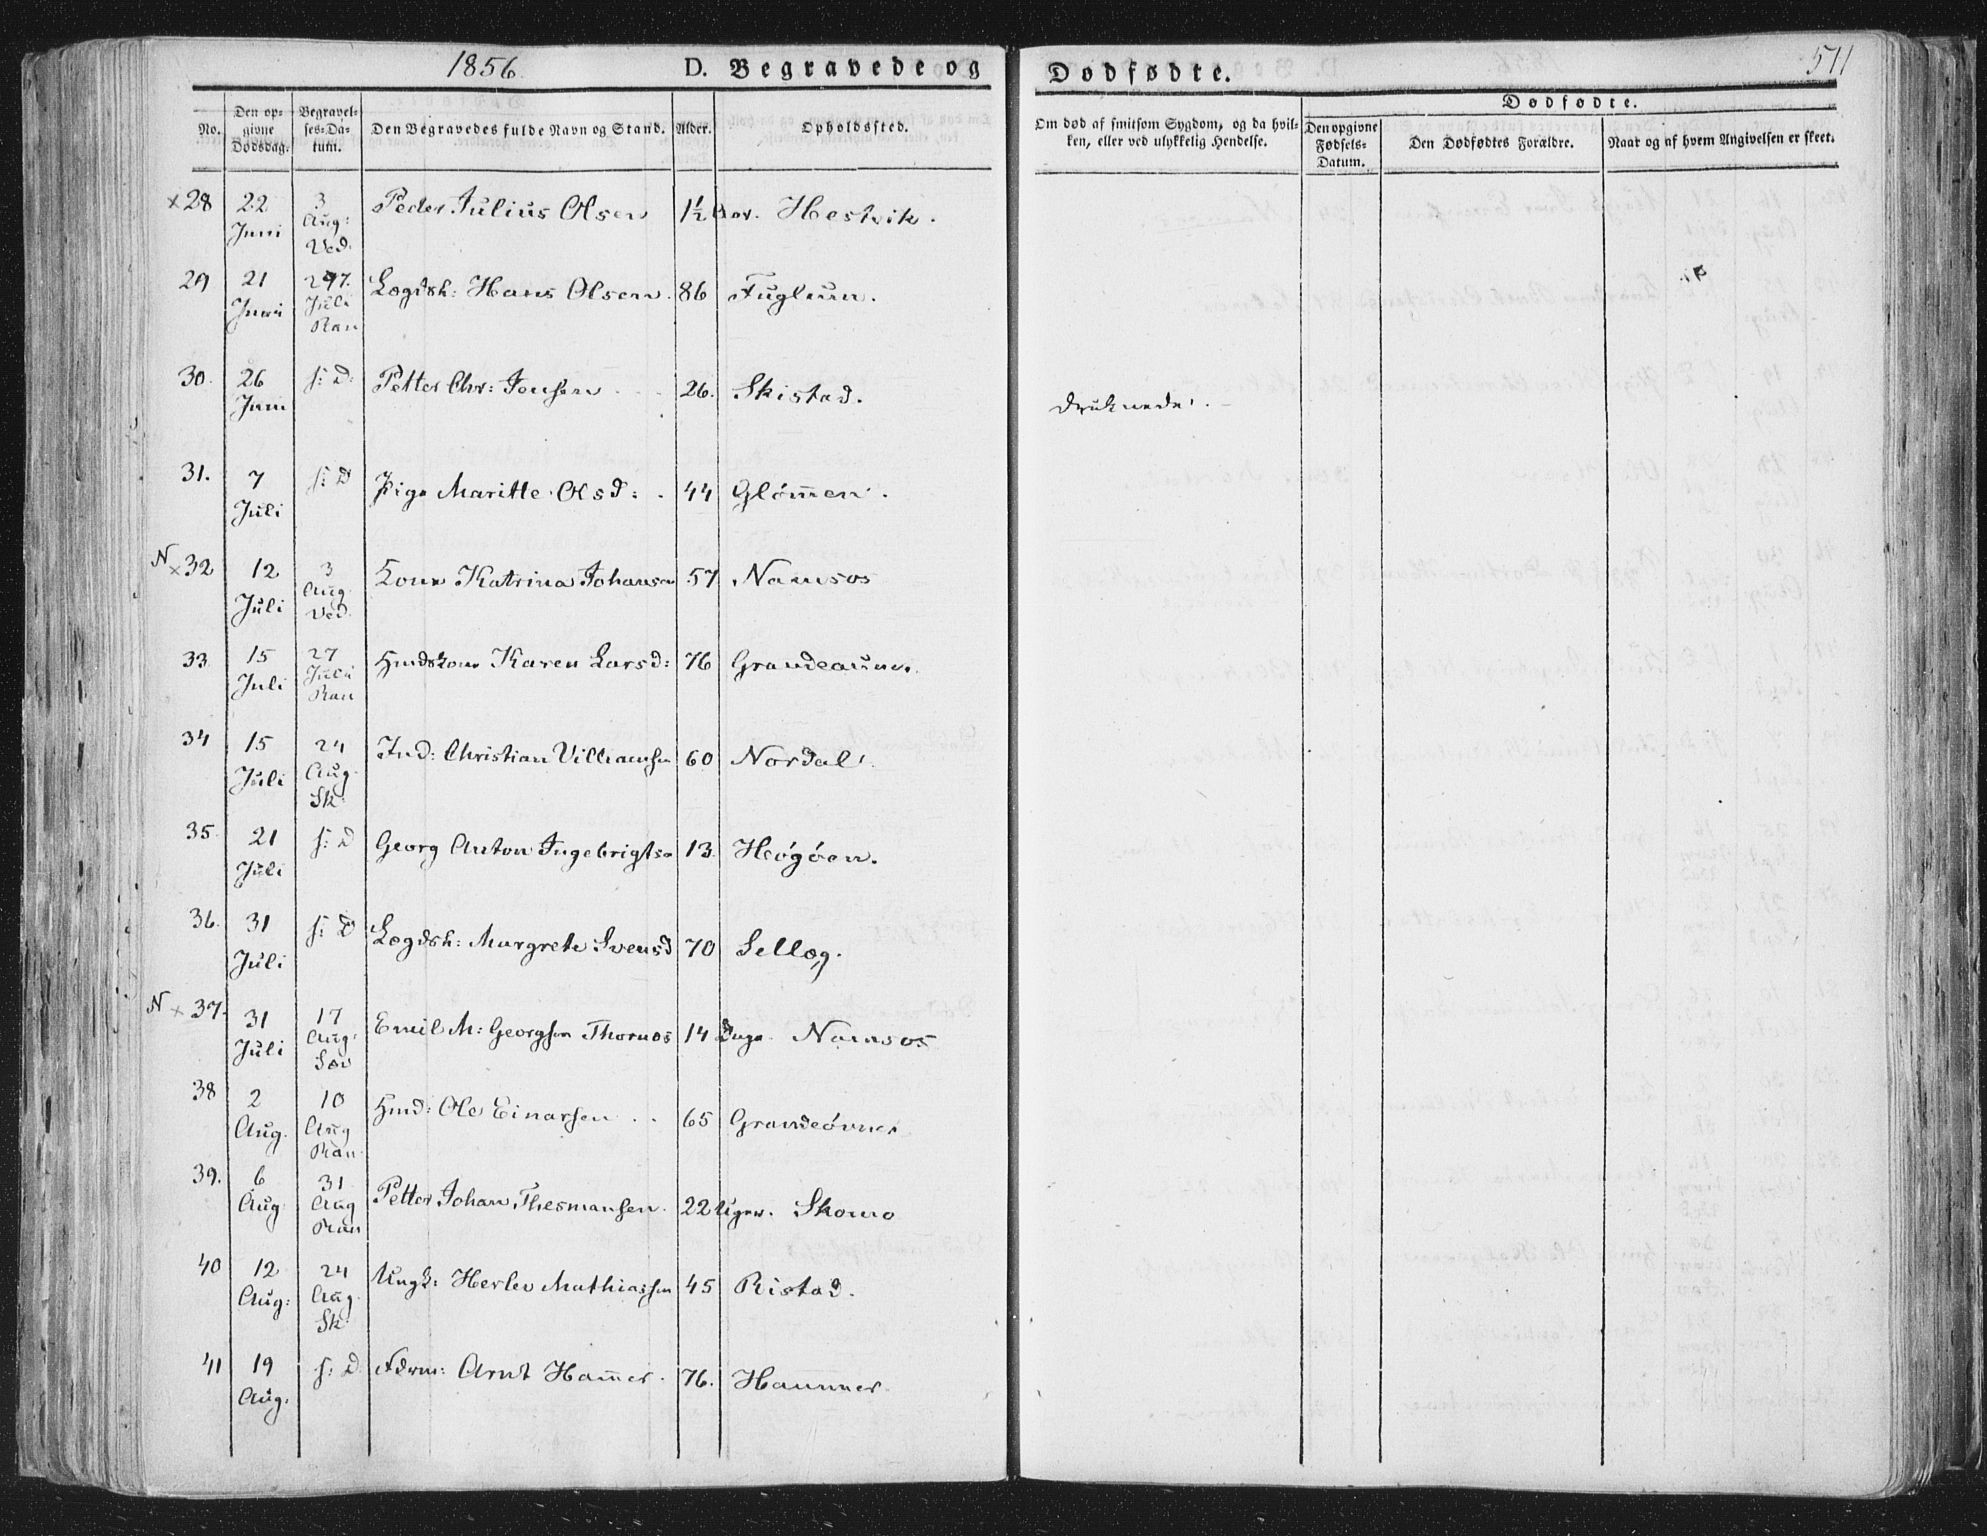 1856. D. Begravede og Dødfødte. 511
No. Den opgivne Dødsdag. Begravelses-Datum. Den Begravedes fulde Navn og Stand. Alder. Opholdssted. Om død af smitsom Sygdom, og da hvilken, eller ved ulykkelig Hendelse. Dødfødte. Den opgivne Fødsels-Datum. Den Dødfødtes Forældre. Naar og af hvem Angivelsen er skeet.
x28 22 Juni 3 Aug: Ved. Peder Julius Olsen 1½ Hestvik.
29 21 Juni 27. Juli Ran Lægdsh: Hans Olsen. 86 Fugleun.
30. 26 Juni s: D: Petter Chr: Jensen 26. Skistad. druknede.
31. 7 Juli s: D Pige Maritte Olsd: 44 Glömen.
N x32 12 Juli 3 Aug. Ved. Kone Katrina Johansen 57 Namsos
33 15 Juli 27 Juli Ran Hmdskone Karen Larsd: 76 Grandeaune.
34 15 Juli 24 Aug. Sk: Ind: Christian Villiamsen 60 Nordal.
35. 21 Juli s: D Georg Anton Ingebrigts. 13. Høgøen.
36. 31 Juli s: D Lægdsh: Margrete Svensd 70 Sellæg.
N x 37. 31 Juli 17 Aug: Sæv Emil M: Georgsen Thornes 14 Dage. Namsos
38 2 Aug. 10 Aug Ran. Hmd: Ole Einarsen 65 Grandeövne.
39. 6 Aug 31 Aug Ran Petter Johan Thesmansen. 22 Uger. Skomo
40 12 Aug: 24 Aug. Sk: Ungk: Herlev Mathiassen 45 Ristad.
41 19 Aug. s: D. Føderm: Arnt Hamer. 76. Hammer.